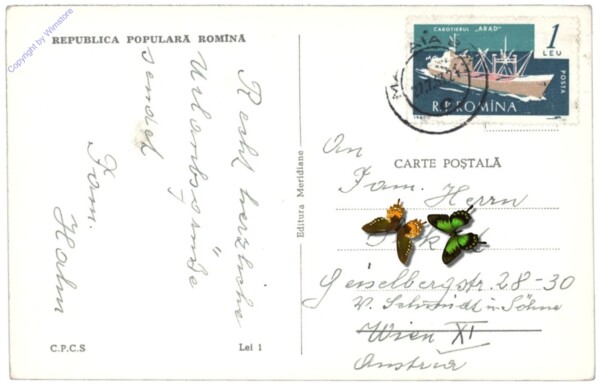 Copyright by Wimstore
REPUBLICA POPULARĂ ROMÎNA
Recht herzliche
Urlaubsgrüße
sendet
Fam.
Halm
C.P.C.S
Lei 1
Editura Meridiane
CARGOTIERUL "ARAD"
1
LEU
POSTA
R.P.ROMÎNA
CARTE POȘTALĂ
An
Fam. Herrn
Geiselbergstr. 28-30
v. Schmidt u. Söhne
Wien XI
Austria